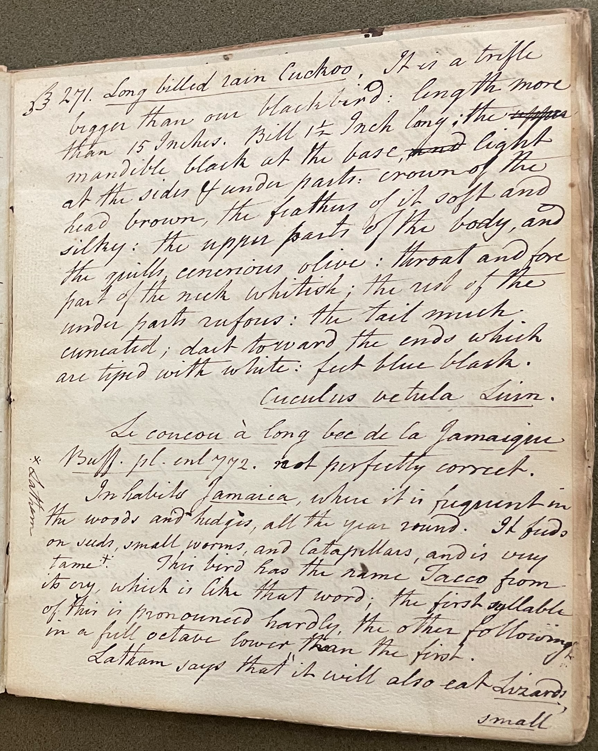 271. Long billed rain Cuckoo. It is a trifle
bigger than our blackbird: length more
than 15 Inches. Bill 1½ Inch long; the upper
mandible black at the base, and light
at the sides & under parts: crown of the
head brown, the feathers of it soft and
silky: the upper parts of the body, and
the quills, cenerious olive: throat and fore
part of the neck whitish; the rest of the
under parts rufous: the tail much
cuneated; dark toward the ends which
are tiped with white: feet blue black.
Cuculus vetula Linn.
Le coucou à long bec de la Jamaique
Buff. pl. enl 772. not perfectly correct.
Inhabits Jamaica, where it is frequent in
the woods and hedges, all the year round. It feeds
on seeds, small worms, and Catapillars, and is very
tame+. This bird has the name Tacco from
its cry, which is like that word; the first syllable
of this is pronounced hardly, the other following
in a full octave lower than the first.
Latham says that it will also eat Lizards,
small
x Latham